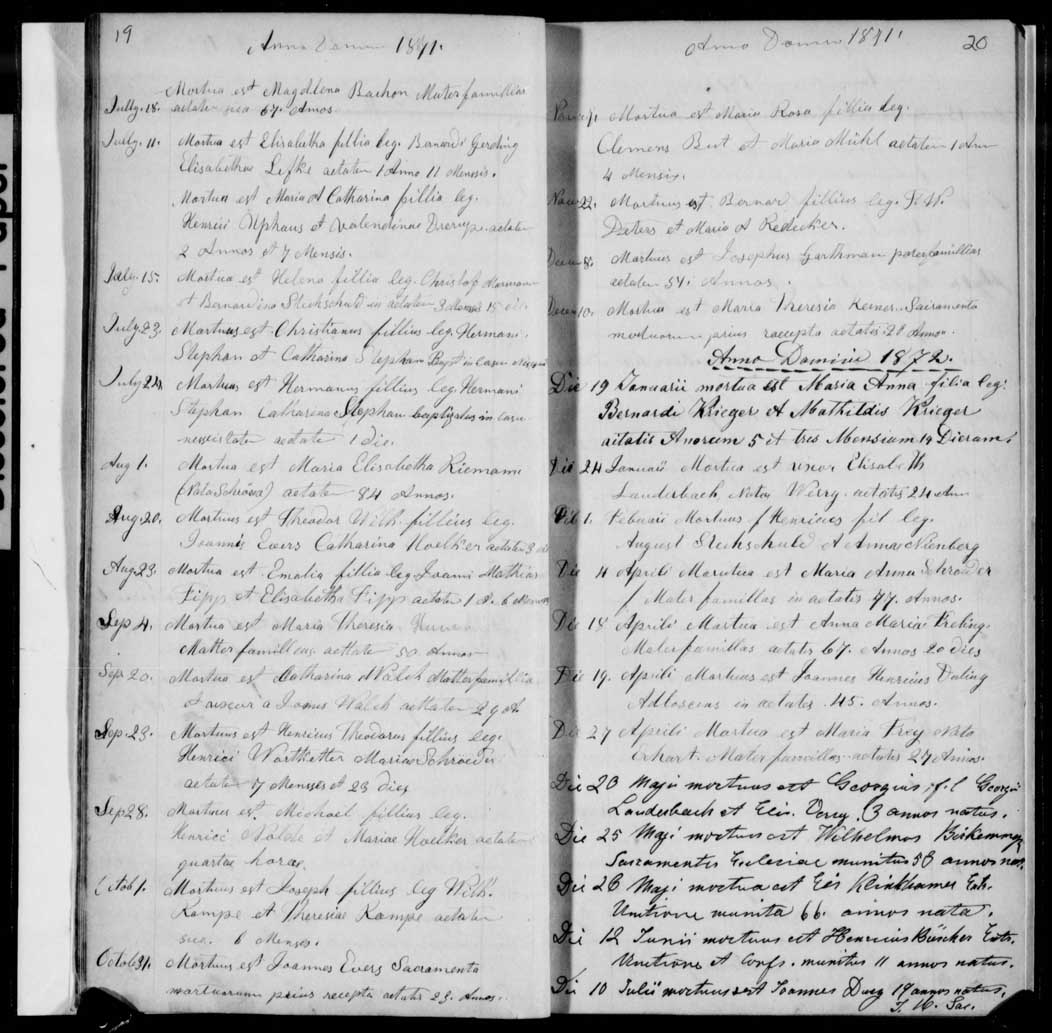 19
Anno Domini 1871.
Mortua est Magdlena Bachon Mater familias
Jully. 18. aetaten sua 67. Annos
Jully. 11. Mortua est Elisabetha fillia leg. Bernardi Gerding
Elisabethae Lefke aetaten 1 Anno 11 Mensis.
Mortua est Maria Catharina fillia leg.
Henrici Alphaus et Valendinae aetaten
2 Annos et 7 Mensis.
July. 15. Mortua est Helena fillia leg. Christof Hermann
et Bernardina Stechschuld in aetaten 15 die
July 23. Mortuus est Christianus fillius leg. Hermani
Stephan et Catharina Stephan Bapt in casu
July 24. Mortuus est Hermanus fillius leg. Hermani
Stephan Catharina Stephan baptizatus in casu
nescistate aetate 1 die.
Aug 1. Mortua est Maria Elisabetha Riemann
(Nata Schröer) aetate 84 Annos.
Aug. 20. Mortuus est Theodor Wilh. fillius leg.
Joannis Evers Catharina Hoelker aetaten 3
Aug 23. Mortua est Emalia fillia leg. Joanni Mathias
Fipps et Elisabetha Fipps aetaten 1 6
Sep 4. Mortua est Maria Theresia
Matter famillias aettate 50 Annos
Sep. 20. Mortua est Catharina Walch Matter famillia
a James Walch aettaten 29
Sep. 23. Mortuus est Henricus Theodorus fillius leg.
Henrici Wortketter Maria Schröeder
aetate 7 Menses et 23 dies
Sep 28. Mortuus est. Michael fillius leg.
Henrici Nolde et Mariae Hoelker aetaten
quartae horae.
Octob 1. Mortuus est Joseph fillius leg Wilh.
Kampe et Theresiae Kampe aetaten
sua. 6 Menses.
Octob 31. Mortuus est Joannes Evers Sacramenta
mortuorum prius recepta aetatis 23. Annos.
Anno Domini 1871.
20
Mortua est Maria Rosa fillia leg.
Clemens But et Maria Mühl aetaten 1 Ann
4 Mensis.
Nove 22. Mortuus est Bernar fillius leg. F. W.
Deters et Maria A Redecker.
Decem 8. Mortuus est Josephus Garthman pater famillias
aetaten 54: Annos.
Decem 10. Mortua est Maria Theresia Reiner. Sacramenta
moduorum prius raecepta aetatis 28 Annos.
Anno Domini 1872.
Die 19 Januarii mortua est Maria Anna filia leg:
Bernardi Krieger et Mathildis Krieger
aitatis Anorum 5 et tres Mensium 14 Dieram.
Die 24 Januari Mortua est uxor Elisabeth
Lauderbach, Nata Werry aetatis 24 Ann
1. Febuari Mortuus Henricus fil leg.
August Stechschuld et Anna Nienberg
Die 4 Aprili Morutua est Maria Anna Schroeder
Mater famillas in aetatis 77. Annos.
Die 18 Aprili Mortua est Anna Maria Freling.
Mater famillas aetatis 67. Annos 20 dies
Die 19. Aprili Mortuus est Joannes Henricus Duling
Adloscens in aetatis 45. Annos.
Die 27 Aprili Mortua est Maria Frey Nata
Erhart. Mater famillas aetatis 27 Annos.
Die 20 Maji mortuus est Georgius f. l. Georgii
Lauderbach et Elis. Verry, 3 annos natus.
Die 25 Maji mortuus est Wilhelmos
Sacramentis Ecclesiae munitus 56 annos nat.
Die 26 Maji mortua est Elis Rinkhamer Ext.
Unctione munita 66. annos nata.
Die 12 Junii mortuus est Henricus Büscher Extr.
Unctione et Confs. munitus 11 annos natus.
Die 10 Julii mortuus est Joannes Dung 19 annos natus,